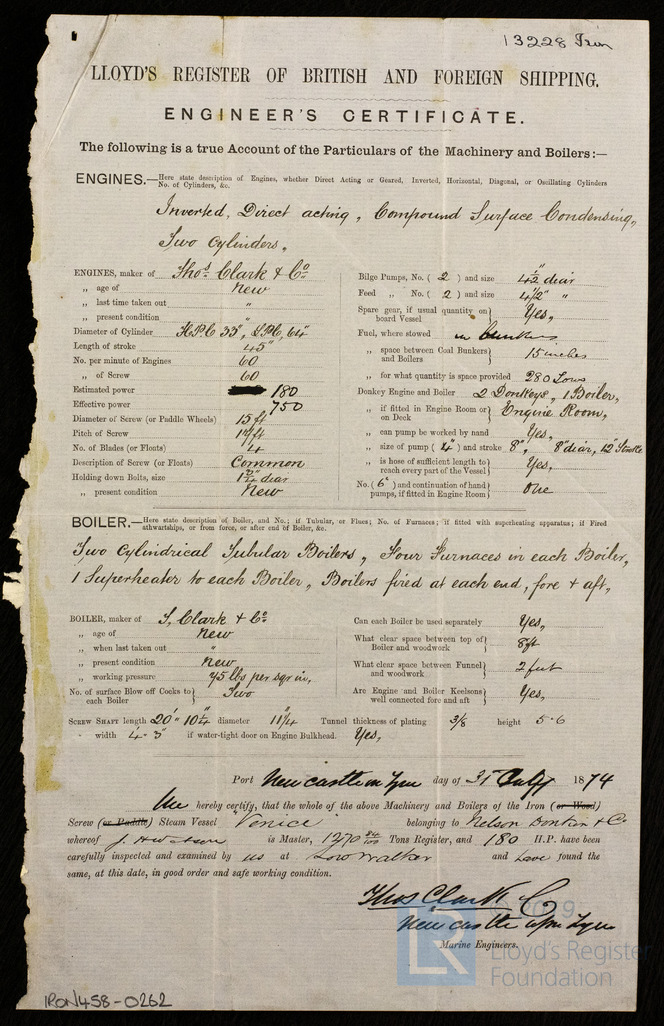 13228 Iron
LLOYD'S REGISTER OF BRITISH AND FOREIGN SHIPPING.
ENGINEER'S CERTIFICATE.
The following is a true Account of the Particulars of the Machinery and Boilers:—
ENGINES.—Here state description of Engines, whether Direct Acting or Geared, Inverted, Horizontal, Diagonal, or Oscillating Cylinders
No. of Cylinders, &c.
Inverted, Direct acting, Compound Surface Condensing,
Two Cylinders,
ENGINES, maker of Thos. Clark & Co
„ age of New
„ last time taken out "
„ present condition "
Diameter of Cylinder H.P.C 33", L.P.C. 64"
Length of stroke 45"
No. per minute of Engines 60
„ of Screw 60
Estimated power 180
Effective power 750
Diameter of Screw (or Paddle Wheels) 15 ft
Pitch of Screw ft
No. of Blades (or Floats) 4
Description of Screw (or Floats) Common
Holding down Bolts, size diar
„ present condition New
Bilge Pumps, No. ( 2 ) and size 4½" diar
Feed „ No. ( 2 ) and size 4½" "
Spare gear, if usual quantity on board Vessel Yes,
Fuel, where stowed in bunkers
„ space between Coal Bunkers and Boilers 15 inches
„ for what quantity is space provided 280 Tons
Donkey Engine and Boiler 2 Donkeys, 1 Boiler,
„ if fitted in Engine Room or on Deck Engine Room,
„ can pump be worked by hand Yes,
„ size of pump ( 4" ) and stroke 8", 8" diar, 12" Stroke
„ is hose of sufficient length to reach every part of the Vessel Yes,
No. (6") and continuation of hand pumps, if fitted in Engine Room One
BOILER.—Here state description of Boiler, and No.; if Tubular, or Flues; No. of Furnaces; if fitted with superheating apparatus; if Fired
athwartships, or from force, or after end of Boiler, &c.
Two Cylindrical Tubular Boilers, Four Furnaces in each Boiler,
1 Superheater to each Boiler, Boilers fired at each end, fore & aft,
BOILER, maker of T. Clark & Co
„ age of New
„ when last taken out "
„ present condition New
„ working pressure 75 lbs per sqr in,
No. of surface Blow off Cocks to each Boiler Two
Can each Boiler be used separately Yes,
What clear space between top of Boiler and woodwork 8 ft
What clear space between Funnel and woodwork 2 feet
Are Engine and Boiler Keelsons well connected fore and aft Yes,
SCREW SHAFT length 20' 10¼" diameter 11¼" Tunnel thickness of plating 3/8 height 5·6
„ width 4·3" if water-tight door on Engine Bulkhead. Yes,
Port Newcastle on Tyne day of 31st July 1874
We hereby certify, that the whole of the above Machinery and Boilers of the Iron (or Wood)
Screw (or Paddle) Steam Vessel "Venice" belonging to Nelson Donkin & Co
whereof J. is Master, 1270 Tons Register, and 180 H.P. have been
carefully inspected and examined by us at Low Walker and have found the
same, at this date, in good order and safe working condition.
Thos Clark & Co
Newcastle upon Tyne
Marine Engineers.
© 2019
LR
Lloyd's Register
Foundation
IRON458-0262